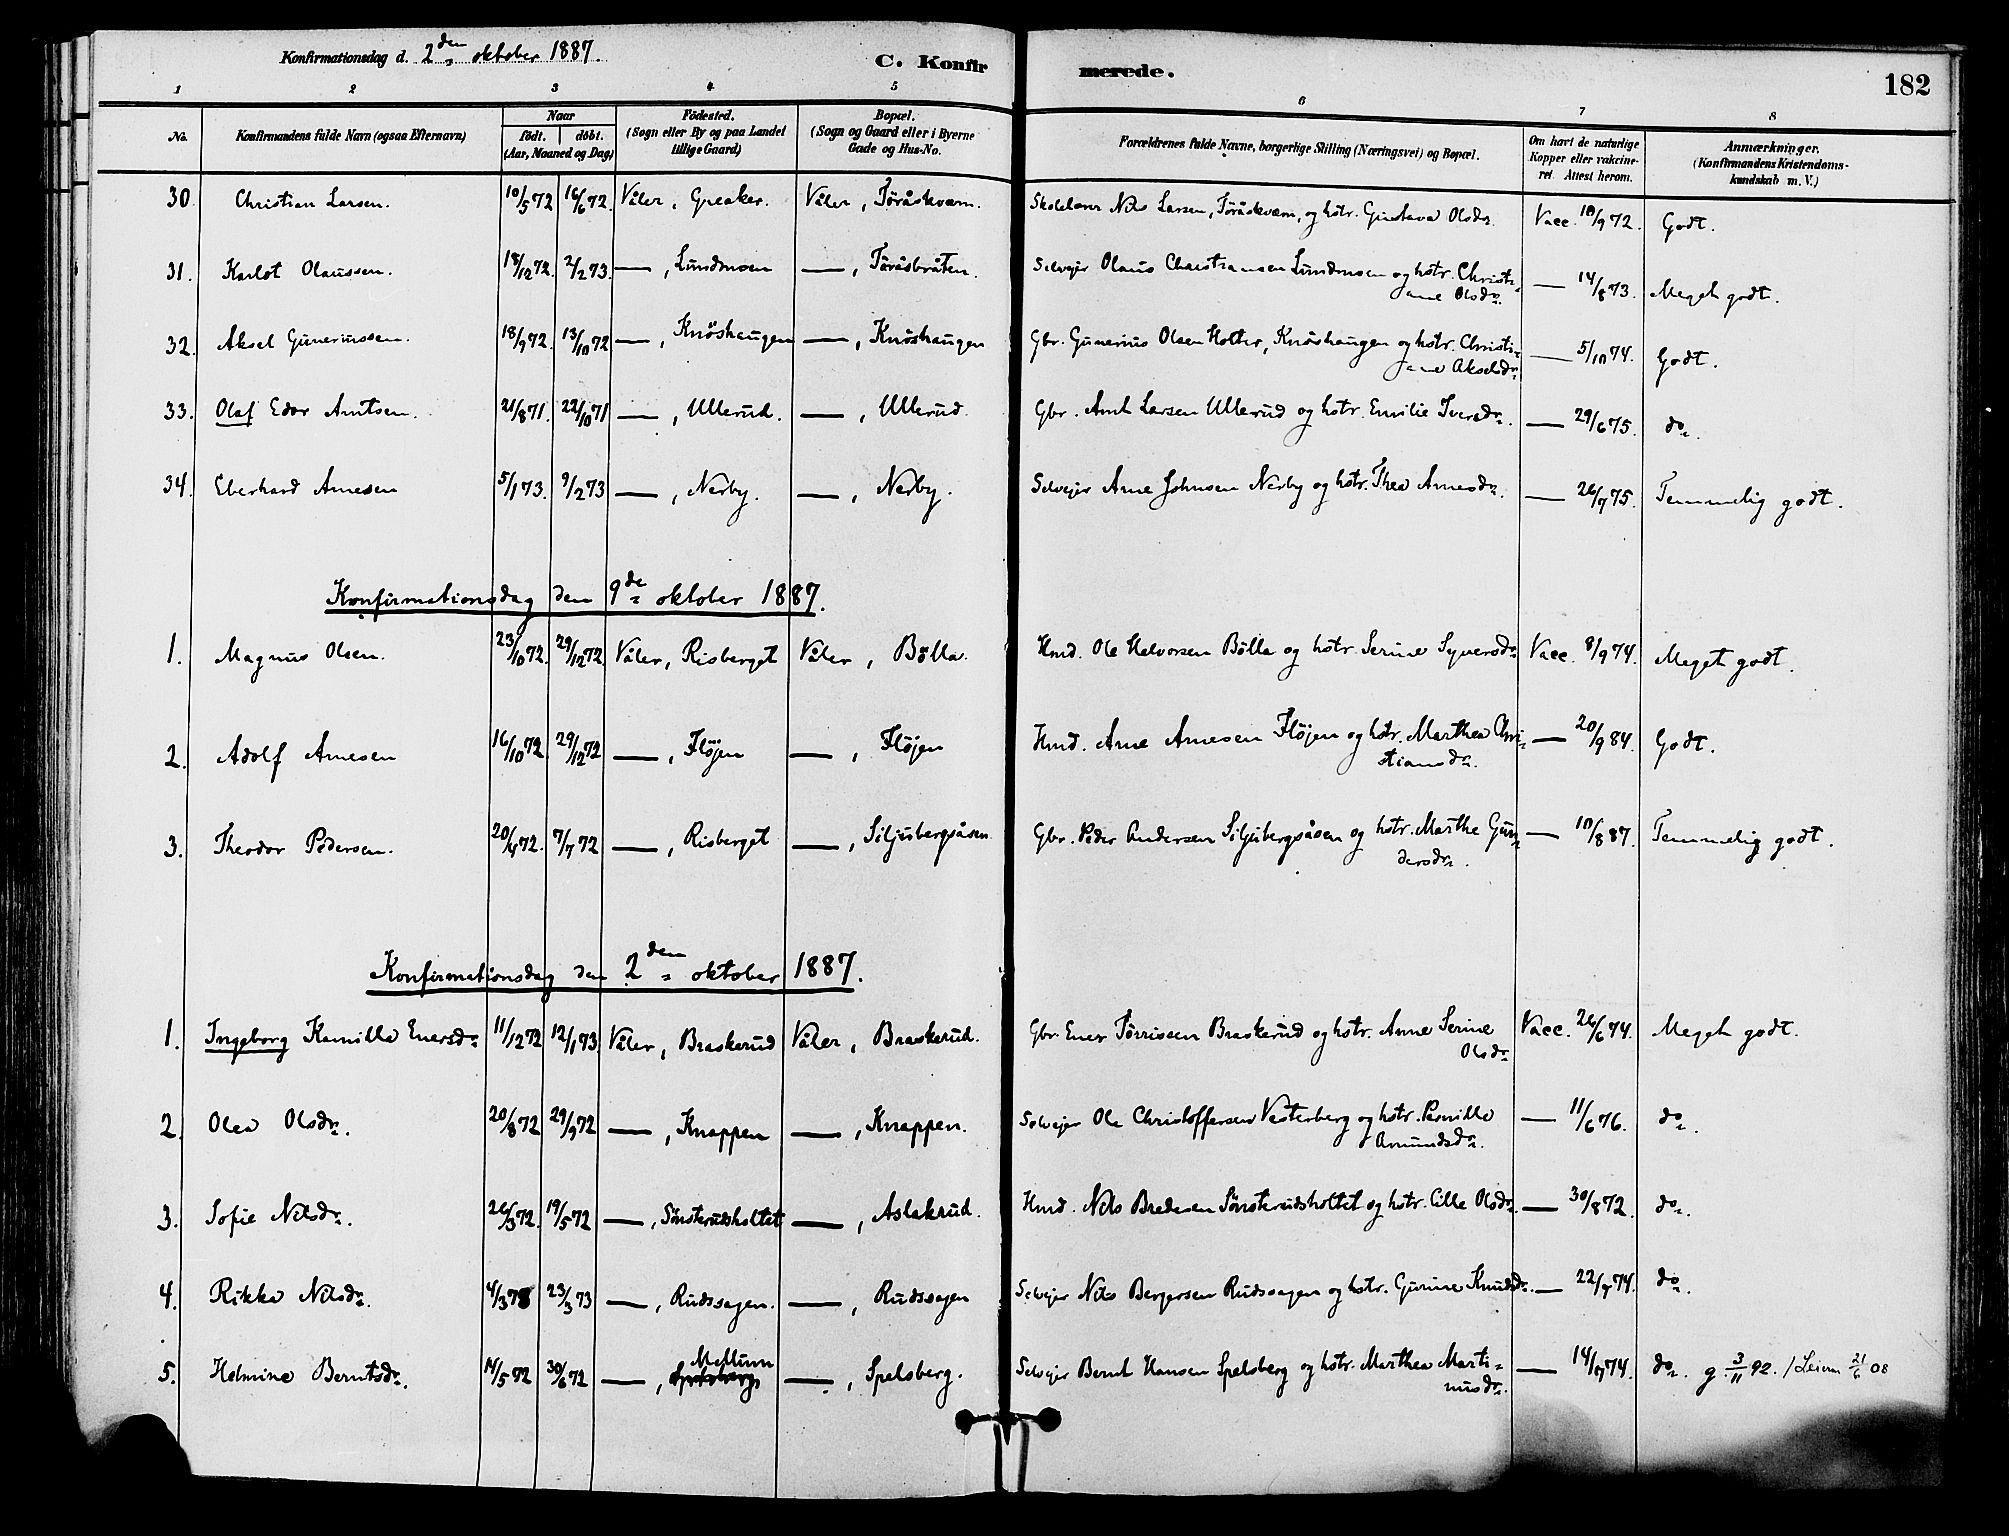 Konfirmationsdag d. 2den oktober 1887.
C. Konfirmerede.
182
1 2 3 4 5 6 7 8
No. Konfirmandens fulde Navn (ogsaa Efternavn) Naar født. døbt. (Aar, Maaned og Dag) Fødested. (Sogn eller By og paa Landet tillige Gaard) Bopæl. (Sogn og Gaard eller i Byerne Gade og Hus-No. Forældrenes fulde Navne, borgerlige Stilling (Næringsvei) og Bopæl. Om havt de naturlige Kopper eller vaccineret. Attest herom. Anmærkninger. (Konfirmandens Kristendomskundskab m. V.)
30. Christian Larsen. 10/5 72 16/6 72. Våler, Greaker. Våler, Töråskvern. Skolelærer Nils Larsen, Töråskvern, og hstr. Gustava Olsdr. Vacc. 10/9 72. Godt.
31. Karlot Olaussen. 18/12 72. 2/2 73. — , Lundmoen — , Töråsbråten. Selvejer Olaus Christiansen Lundmoen og hstr. Christi=
ane Olsdr. — 14/8 73. Meget godt.
32. Aksel Guneriussen. 18/9 72. 13/10 72 — , Knöshaugen — , Knöshaugen Gbr. Gunerius Olsen Holter, Knöshaugen og hstr. Christi=
ane Akselsdr. — 5/10 74. Godt.
33. Olaf Edvar Arntsen. 21/8 71. 22/10 71 — , Ullerud. — , Ullerud. Gbr. Arnt Larsen Ullerud og hstr. Emilie Iversdr. — 29/6 75. do.
34. Eberhard Arnesen 5/1 73. 9/2 73 — , Nerby. — , Nerby. Selvejer Arne Johnsen Nerby og hstr. Thea Arnesdr. — 26/7 75. Temmelig godt.
Konfirmationsdag den 9de oktober 1887.
1. Magnus Olsen. 23/10 72. 29/12 72 Våler, Risberget Våler, Bölla. Hmd. Ole Halvorsen Bölla og hstr. Serine Syversdr. Vacc. 8/9 74. Meget godt.
2. Adolf Arnesen 16/10 72. 29/12 72 — , Flöjen — , Flöjen Hmd. Arne Arnesen Flöjen og hstr. Marthea Chri=
stiansdr. — 20/9 84. Godt.
3. Theodor Pedersen. 20/4 72. 7/7 72 — , Risberget — , Siljubergsåsen Gbr. Peder Andersen Siljubergsåsen og hstr. Marthe Gun=
dersdr. — 10/8 87. Temmelig godt.
Konfirmationsdag den 2den oktober 1887.
1. Ingeborg Kamilla Enersdr. 11/12 72 12/1 73 Våler, Braskerud Våler, Braskerud. Gbr. Ener Törrissen Braskerud og hstr. Anne Serine
Olsdr. Vacc. 26/6 74. Meget godt.
2. Olea Olsdr. 20/8 72 29/9 72 — , Knappen — , Knappen. Selvejer Ole Christoffersen Vesterberg og hstr. Pernille
Amundsdr. — 11/6 76. do.
3. Sofie Nilsdr. 26/3 72. 19/5 72 — , Sönsterudsholtet — , Aslakrud. Hmd. Nils Bredesen Sönsterudsholtet og hstr. Cille Olsdr. — 30/8 72. do.
4. Rikka Nilsdr. 4/3 73 23/3 73 — , Rudssagen. — , Rudssagen Selvejer Nils Bergersen Rudssagen og hstr. Gurine Knudsdr. — 22/7 74. do.
5. Helmine Berntsdr. 14/5 72 30/6 72 — , Mellum — , Spelsberg. Selvejer Bernt Hansen Spelsberg og hstr. Marthea Marti=
nusdr. — 14/7 74. do. g. 3/11 92. 21/6 08